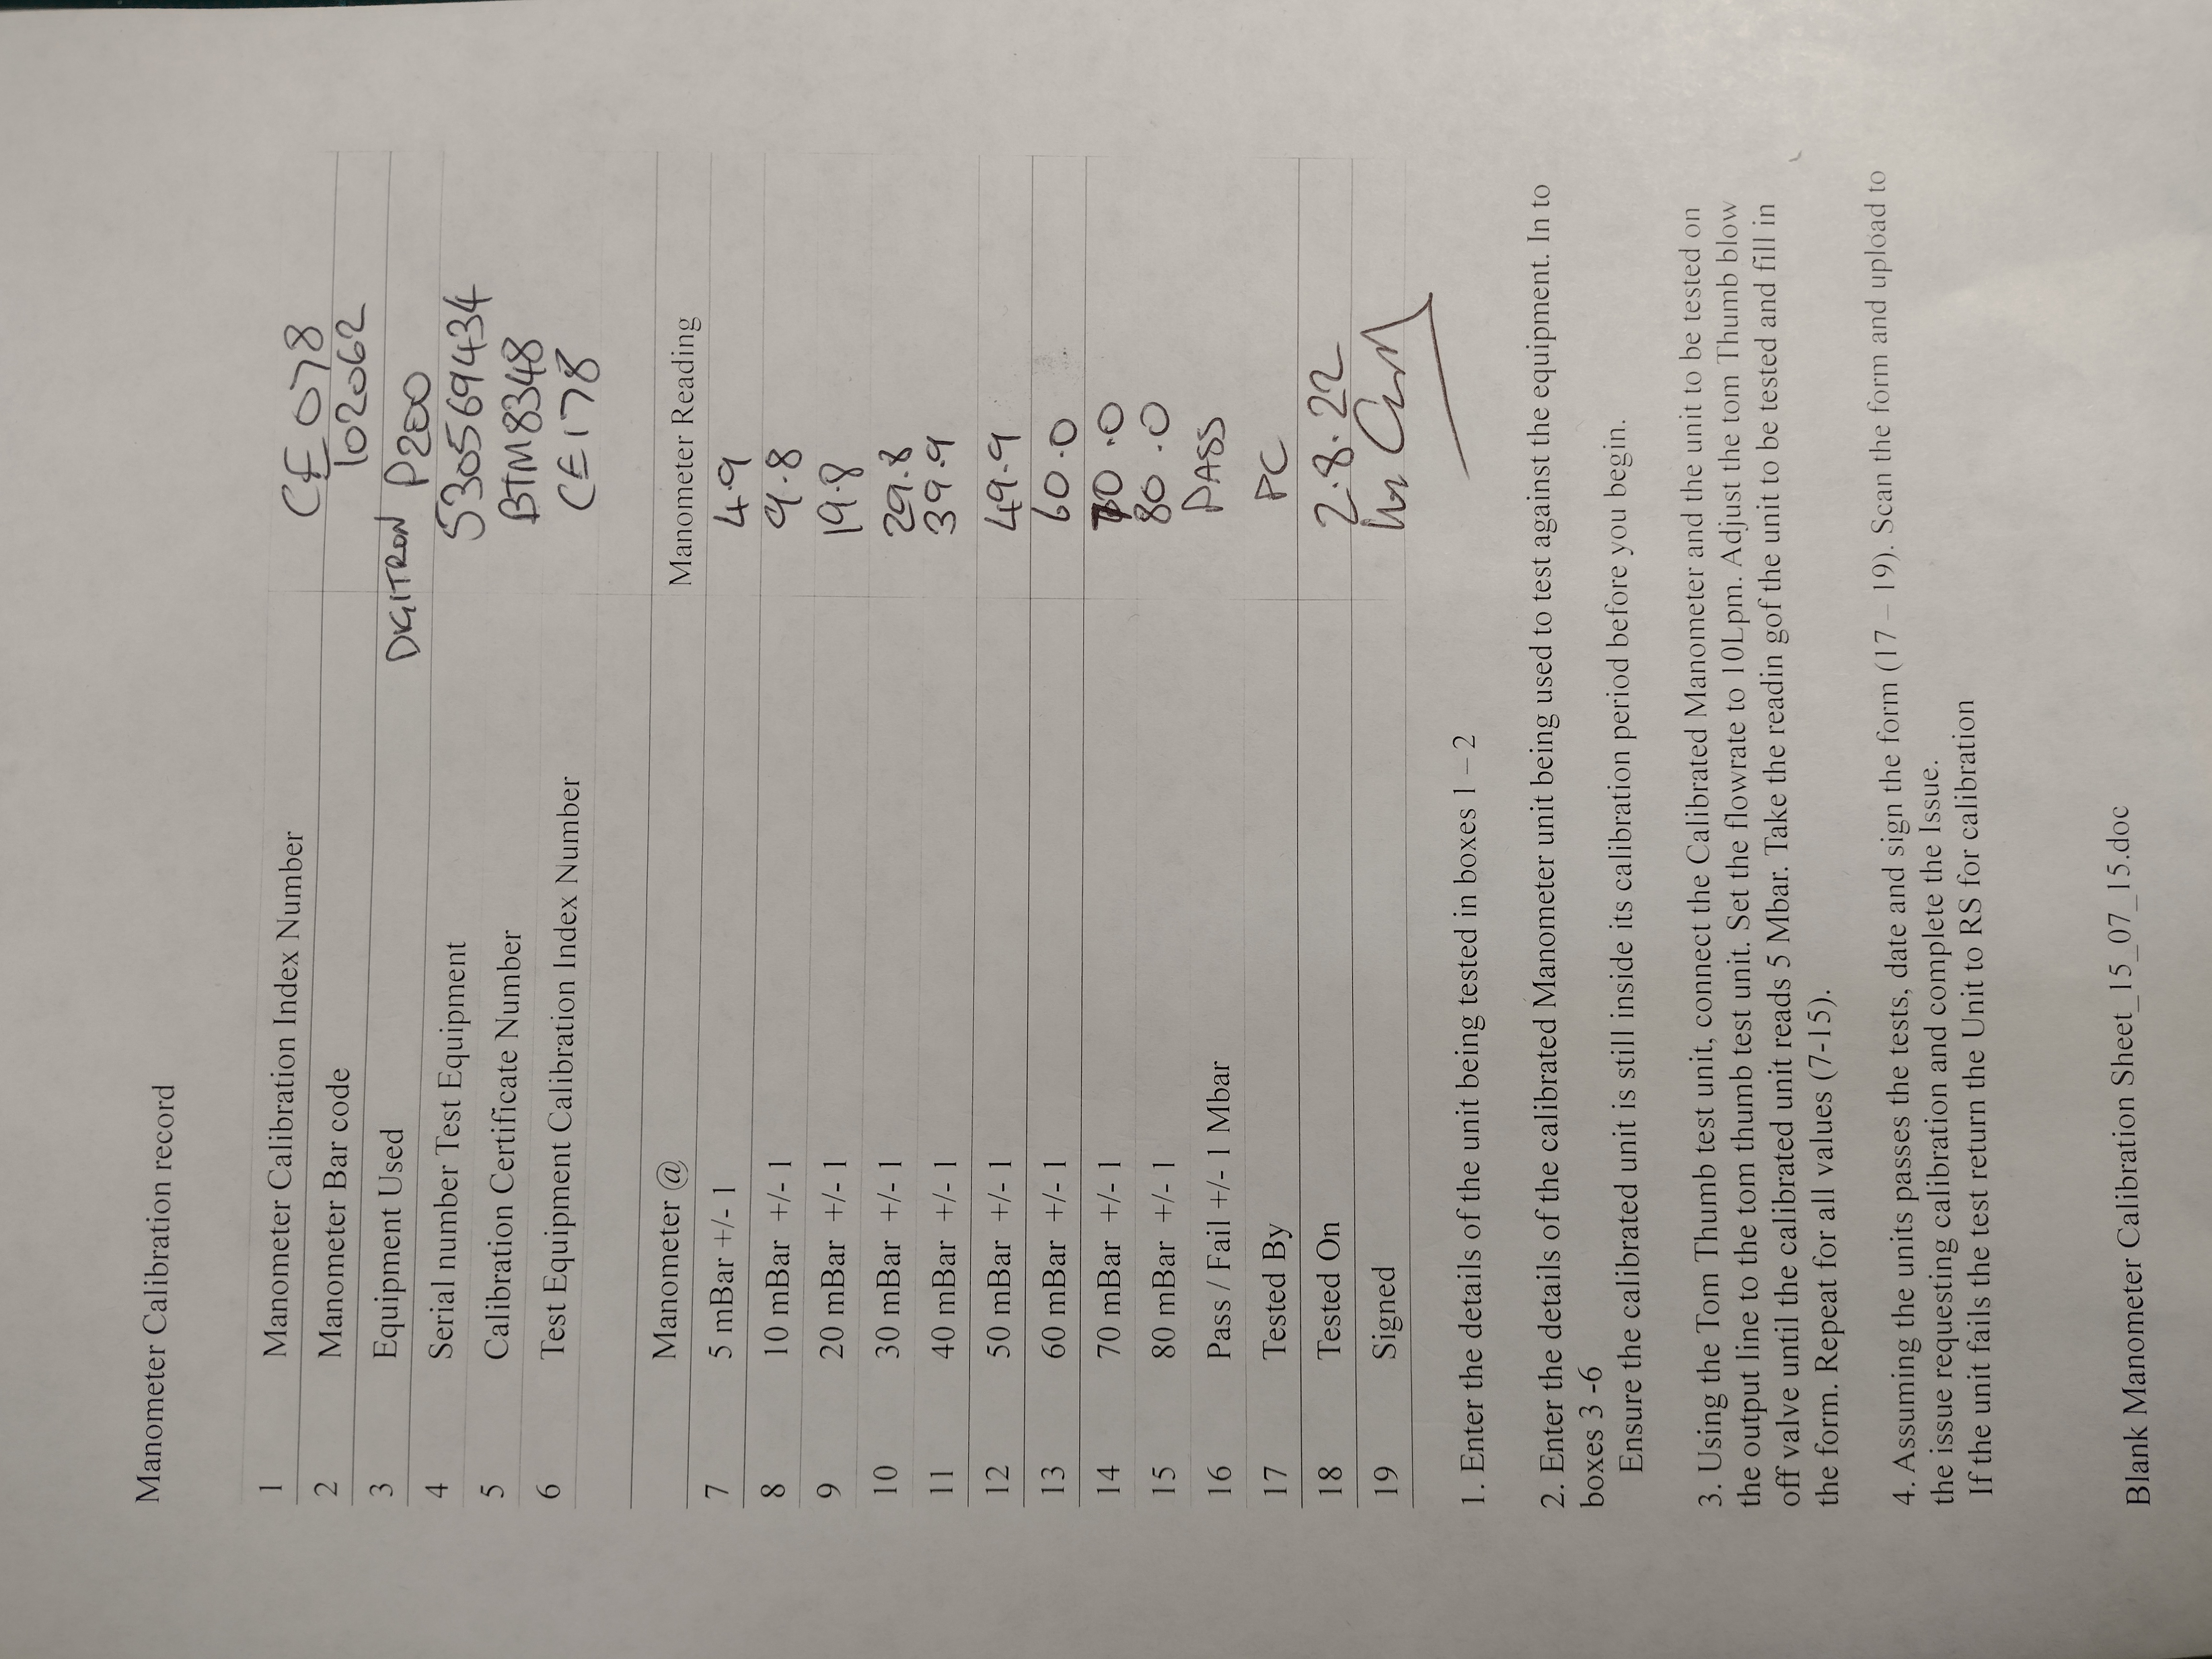 Manometer Calibration record
1 Manometer Calibration Index Number CE078
2 Manometer Bar code 102062
3 Equipment Used DIGITRON P200
4 Serial number Test Equipment 530569434
5 Calibration Certificate Number BTM8348
6 Test Equipment Calibration Index Number CE178
Manometer @ Manometer Reading
7 5 mBar +/- 1 4.9
8 10 mBar +/- 1 9.8
9 20 mBar +/- 1 19.8
10 30 mBar +/- 1 29.8
11 40 mBar +/- 1 39.9
12 50 mBar +/- 1 49.9
13 60 mBar +/- 1 60.0
14 70 mBar +/- 1 70.0
15 80 mBar +/- 1 80.0
16 Pass / Fail +/- 1 Mbar PASS
17 Tested By PC
18 Tested On 2.8.22
19 Signed
1. Enter the details of the unit being tested in boxes 1 – 2
2. Enter the details of the calibrated Manometer unit being used to test against the equipment. In to
boxes 3 -6
Ensure the calibrated unit is still inside its calibration period before you begin.
3. Using the Tom Thumb test unit, connect the Calibrated Manometer and the unit to be tested on
the output line to the tom thumb test unit. Set the flowrate to 10Lpm. Adjust the tom Thumb blow
off valve until the calibrated unit reads 5 Mbar. Take the readin gof the unit to be tested and fill in
the form. Repeat for all values (7-15).
4. Assuming the units passes the tests, date and sign the form (17 – 19). Scan the form and upload to
the issue requesting calibration and complete the Issue.
If the unit fails the test return the Unit to RS for calibration
Blank Manometer Calibration Sheet_15_07_15.doc